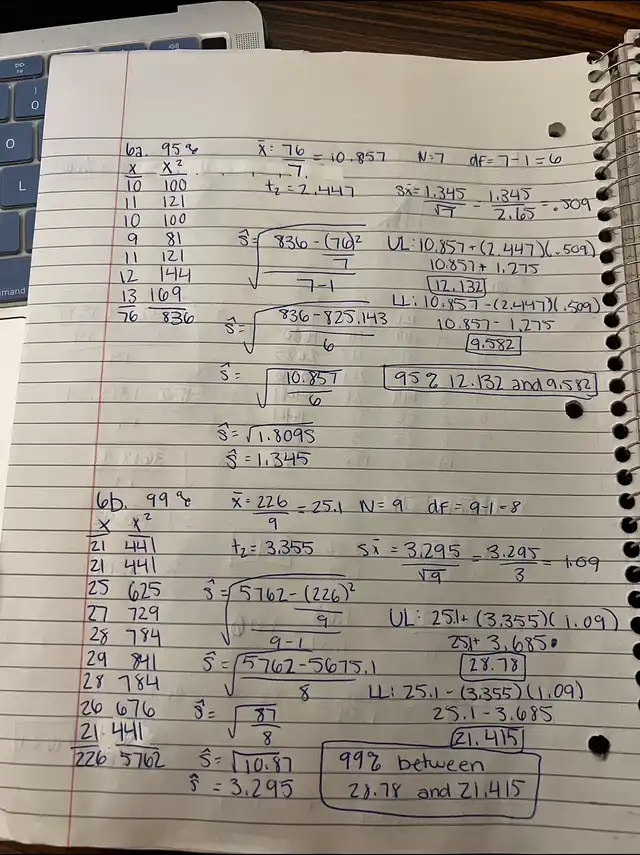 6a. 95%
x x²
10 100
11 121
10 100
9 81
11 121
12 144
13 169
76 836
x̄ = 76/7 = 10.857 N=7 df = 7-1 = 6
t₂ = 2.447 sx̄ = 1.345/√7 = 1.345/2.65 = .509
ŝ = √(836 - (76)²/7 / 7-1)
ŝ = √(836 - 825.143 / 6)
ŝ = √(10.857 / 6)
ŝ = √1.8095
ŝ = 1.345
UL: 10.857 + (2.447)(.509)
10.857 + 1.275
12.132
LL: 10.857 - (2.447)(.509)
10.857 - 1.275
9.582
95% 12.132 and 9.582
6b. 99%
x x²
21 441
21 441
25 625
27 729
28 784
29 841
28 784
26 676
21 441
226 5762
x̄ = 226/9 = 25.1 N = 9 df = 9-1 = 8
t₂ = 3.355 sx̄ = 3.295/√9 = 3.295/3 = 1.09
ŝ = √(5762 - (226)²/9 / 9-1)
ŝ = √(5762 - 5675.1 / 8)
ŝ = √(87 / 8)
ŝ = √10.87
ŝ = 3.295
UL: 25.1 + (3.355)(1.09)
25.1 + 3.685
28.78
LL: 25.1 - (3.355)(1.09)
25.1 - 3.685
21.415
99% between
28.78 and 21.415
O
L
mmand